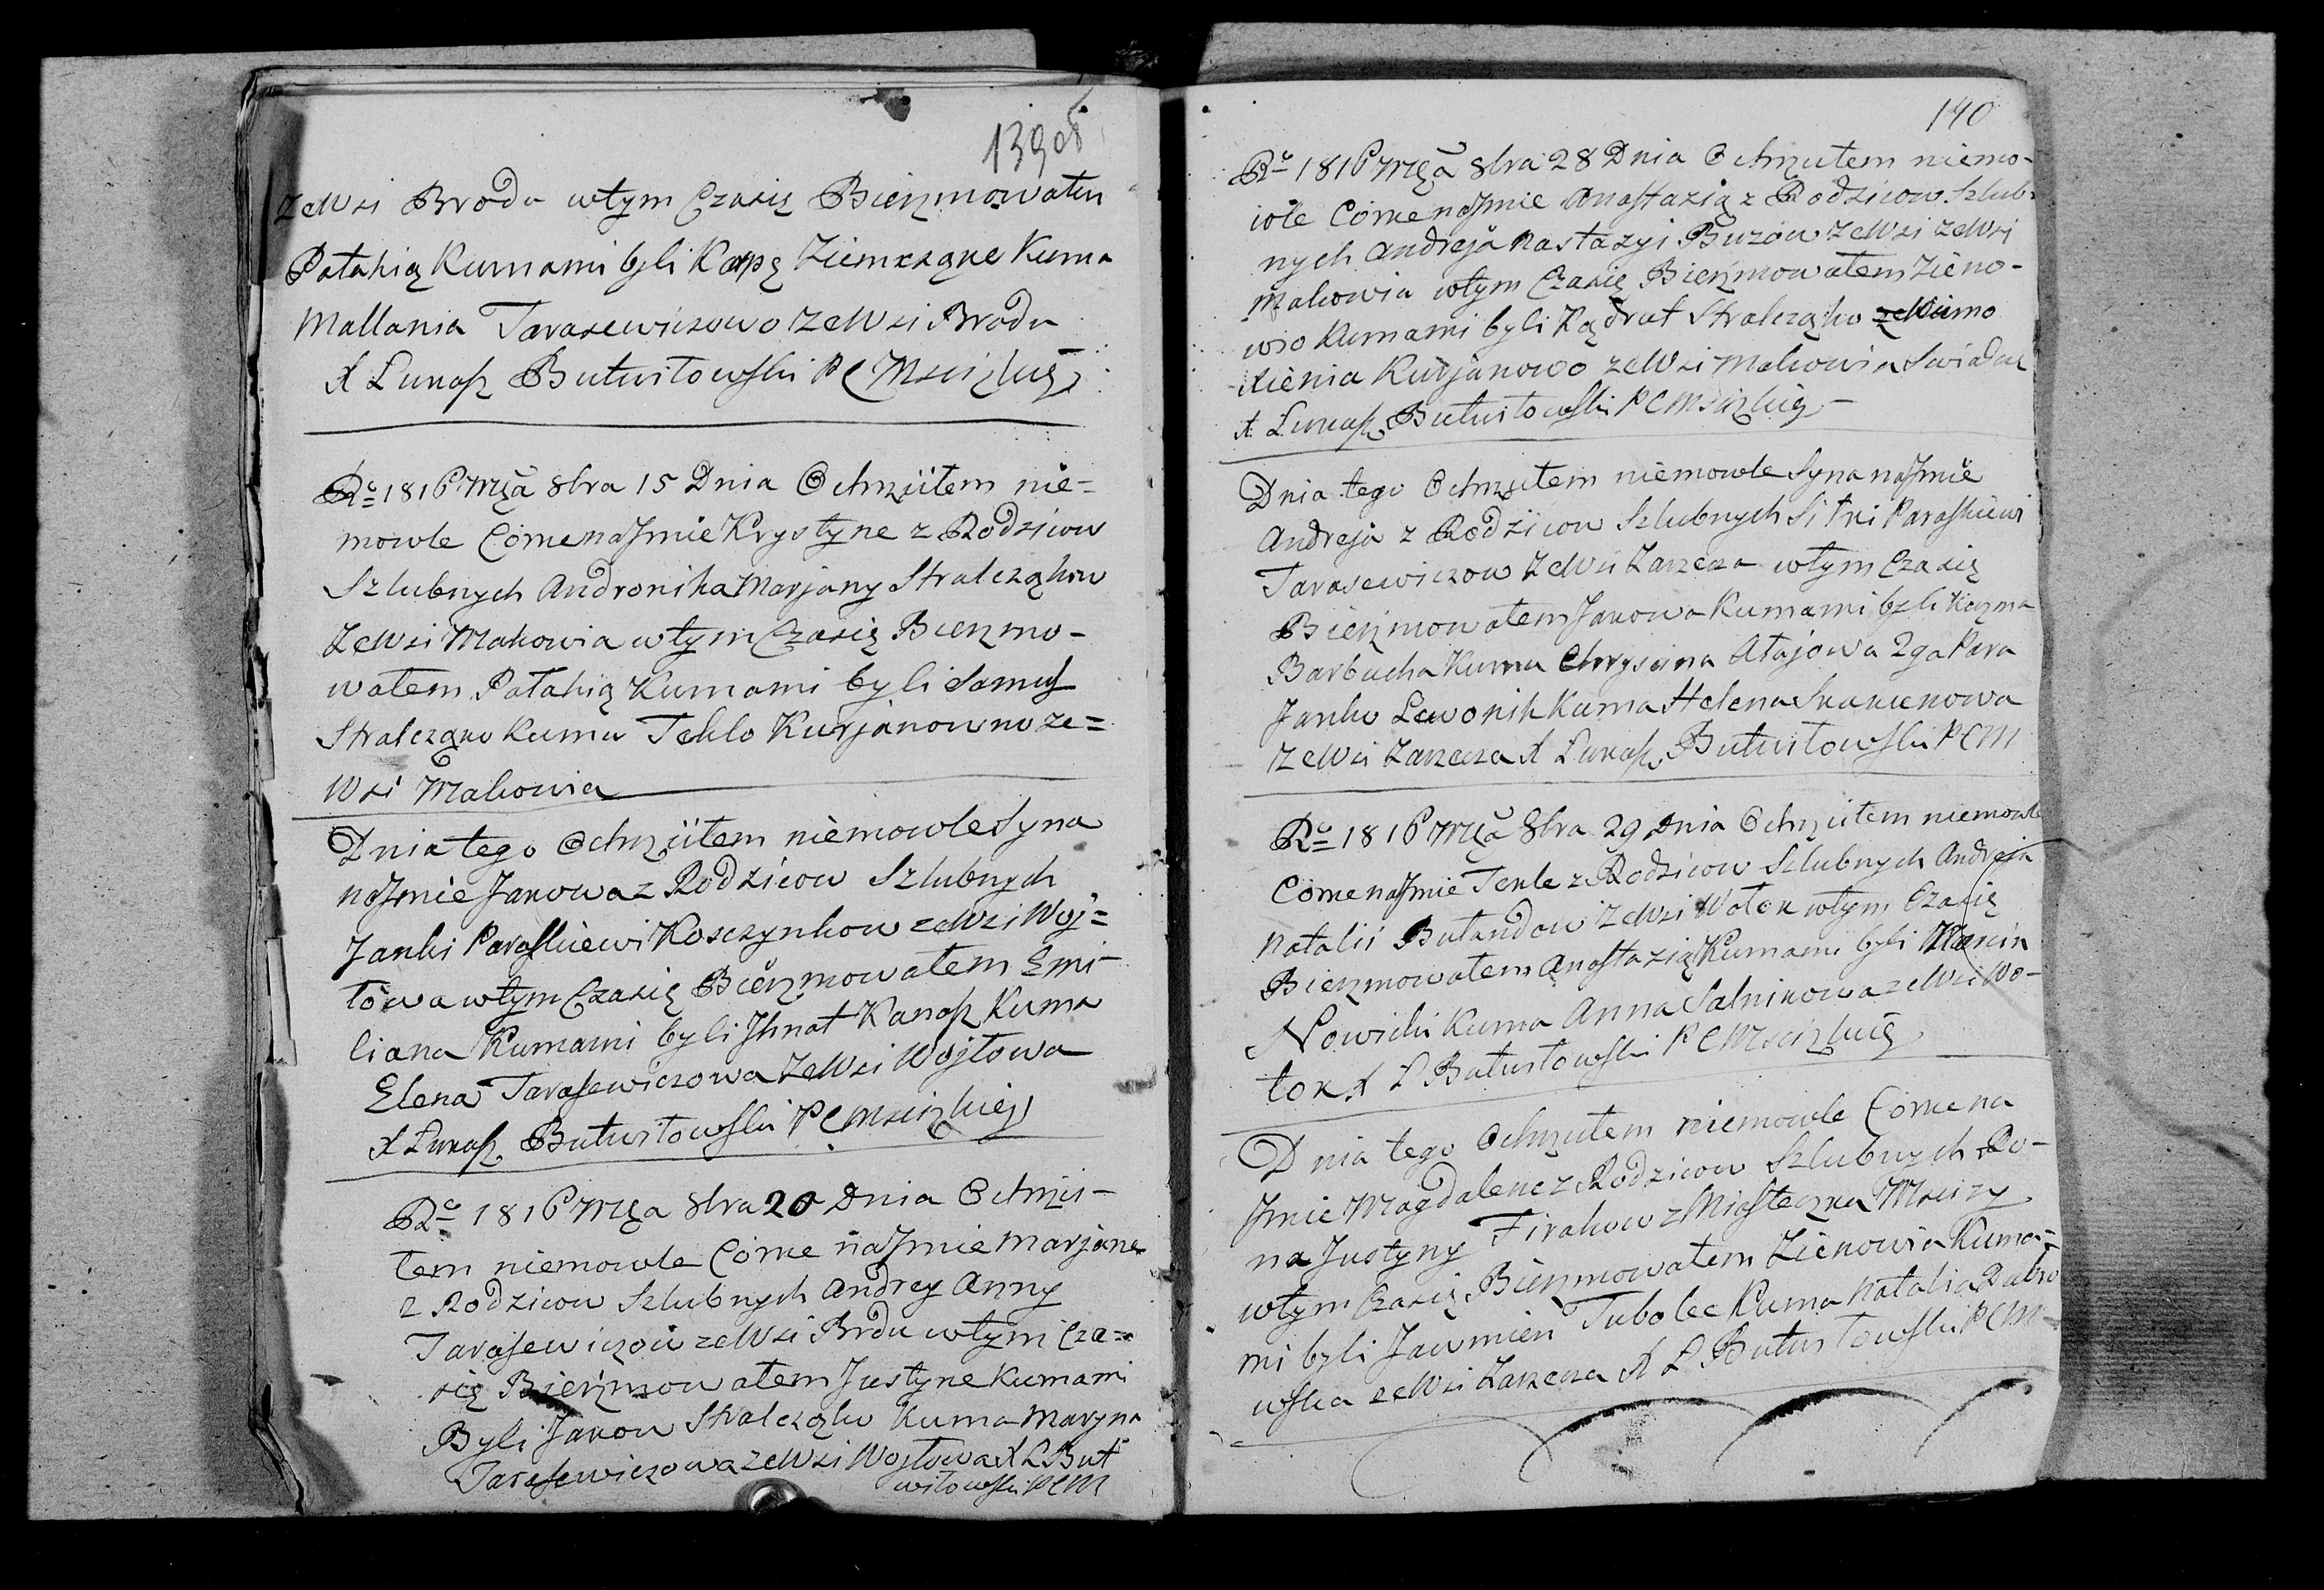 139об
zeWsi Brodu wtym Czasię Bierzmowałem
Patahią Kumami byli Karpę Ziemcząne Kuma
Mallania Tarasewiczowo zeWsi Brodu
X Lukasz Butwiłowski P C Mscizkię
Ro 1816 Męa 8bra 15 Dnia Ochrzciłem nie=
mowle Córke naJmie Krystyne z Rodziców
Szlubnych Andronika Marjany Stralcząków
ZeWsi Makowia wtym Czasię Bierzmo-
wałem Patahią Kumami byli Samuś
Stralcząko Kuma Teklo Kurjanowno ze=
Wsi Makowia
Dnia tego Ochrzciłem niemowle Syna
naJmie Jakowa z Rodzicow Szlubnych
Janki Paraskiewi Kosczynkow zeWsi Woj=
tówa wtym Czasię Bierzmowałem Emi-
liana Kumami byli Jhnat Kanasz Kuma
Elena Tarasewiczowa zeWsi Wojtowa
X Lukasz Butwiłowski P C Mscizkię
Ro 1816 Męa 8bra 20 Dnia Ochrzci-
łem niemowle Córke naJmie Marjane
z Rodzicow Szlubnych Andrey Anny
Tarasewiczow zeWsi Brdu wtym Cza=
się Bierzmowałem Justyne Kumami
Byli Jakow Stralcząko Kuma Maryna
Tarasewiczowa zeWsi Wojtowa X L But
wiłowski P C M
140
Ro 1816 Męa 8bra 28 Dnia Ochrzciłem niemo-
wle Córke naJmie Anastazią z Rodzicow Szlub-
nych Andreja Nastazyi Buzów zeWsi zeWsi
Makowia wtym Czasię Bierzmowałem Zieno-
wio Kumami byli Kądrat Stralcząko Kumo
Xienia Kurjanowo zeWsi Makowia Swiadcz
X Lukasz Butwiłowski P C Mscizkię
Dnia tego Ochrzciłem niemowle Syna naJmie
Andreja z Rodzicow Szlubnych Paraskiewi
Tarasewiczow zeWsi Zarzecza wtym Czasię
Bierzmowałem Jakowa Kumami byli Kuzma
Barbucha Kuma Atajowa 2ga Para
Janko Lewonik Kuma Helena
zeWsi Zarzecza X Lukasz Butwiłowski P C M
Ro 1816 Męa 8bra 29 Dnia Ochrzciłem niemowle
Córke naJmie Tekle z Rodzicow Szlubnych Andreja
Natalii Butandow zeWsi Wołok wtym Czasię
Bierzmowałem Anastazią Kumami byli
Nowicki Kuma Anna Salnikowa zeWsi Wo-
łok X L Butwiłowski P C Mscizkię
Dnia tego Ochrzciłem niemowle Córke na
Jmie Magdalene z Rodzicow Szlubnych Ro-
na Justyny Firakow z Miasteczka Msciży
wtym Czasię Bierzmowałem Zienowia Kuma=
mi byli Jawmien Tubolec Kuma Natalia Dubro
wska zeWsi Zarzecza X L Butwiłowski P C M